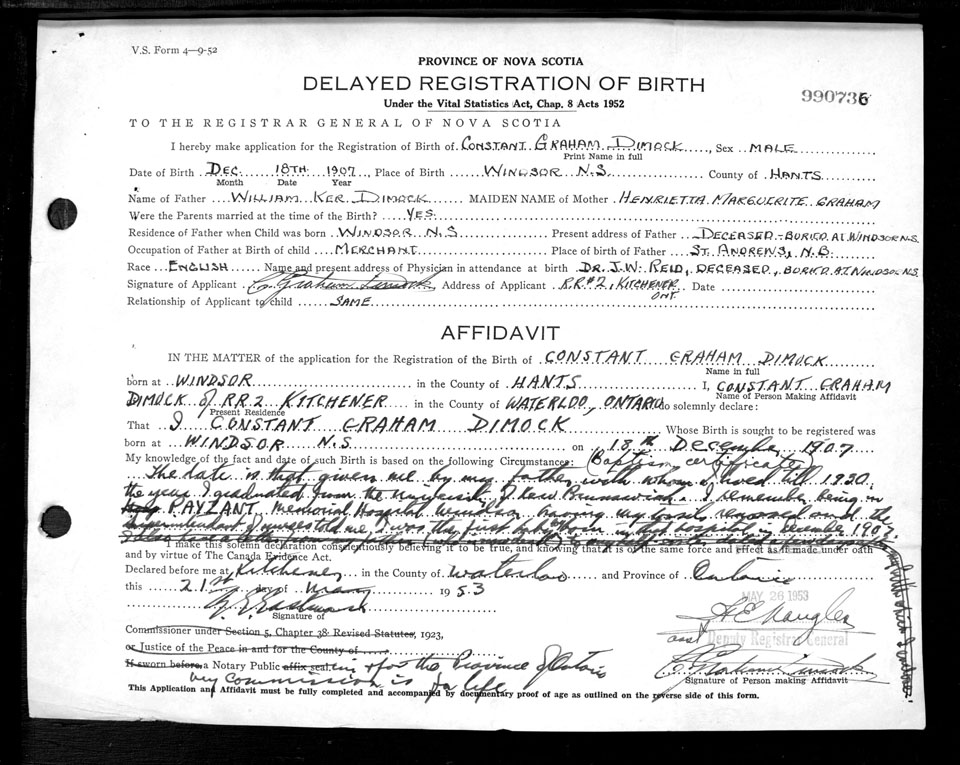 V.S. Form 4—9-52
PROVINCE OF NOVA SCOTIA
DELAYED REGISTRATION OF BIRTH
990736
Under the Vital Statistics Act, Chap. 8 Acts 1952
TO THE REGISTRAR GENERAL OF NOVA SCOTIA
I hereby make application for the Registration of Birth of CONSTANT GRAHAM DIMOCK, Sex MALE
Print Name in full
Date of Birth DEC. 18TH 1907, Place of Birth WINDSOR N.S. County of HANTS
Month Date Year
Name of Father WILLIAM KER DIMOCK MAIDEN NAME of Mother HENRIETTA MARGUERITE GRAHAM
Were the Parents married at the time of the Birth? YES.
Residence of Father when Child was born WINDSOR N.S Present address of Father DECEASED-BURIED AT WINDSOR N.S.
Occupation of Father at Birth of child MERCHANT Place of birth of Father ST. ANDREWS, N.B.
Race ENGLISH Name and present address of Physician in attendance at birth DR. J.W. REID, DECEASED, BURIED AT WINDSOR N.S.
Signature of Applicant C. Graham Dimock Address of Applicant RR#2, KITCHENER ONT. Date
Relationship of Applicant to child SAME
AFFIDAVIT
IN THE MATTER of the application for the Registration of the Birth of CONSTANT GRAHAM DIMOCK
Name in full
born at WINDSOR in the County of HANTS I, CONSTANT GRAHAM
Name of Person Making Affidavit
DIMOCK of RR2 KITCHENER in the County of WATERLOO, ONTARIO do solemnly declare:
Present Residence
That I CONSTANT GRAHAM DIMOCK Whose Birth is sought to be registered was
born at WINDSOR N.S on 18th December 1907
My knowledge of the fact and date of such Birth is based on the following Circumstances: (Baptism certificate)
The date is that given me by my father, with whom I lived till 1930
the year I graduated from the University of New Brunswick. I remember being in
PAYZANT Memorial Hospital Windsor having my tonsils removed and the
Superintendent of nurses told me I was the first baby born in that hospital in December 1907.
I also have a letter from my
I make this solemn declaration conscientiously believing it to be true, and knowing that it is of the same force and effect as if made under oath
and by virtue of The Canada Evidence Act.
Declared before me at Kitchener in the County of Waterloo and Province of Ontario
this 21st day of May 1953
MAY 26 1953
Signature of
Commissioner under Section 5, Chapter 38 Revised Statutes, 1923,
asst Deputy Registrar General
or Justice of the Peace in and for the County of
If sworn before a Notary Public affix seal in & for the Province of Ontario
C. Graham Dimock
my Commission is for life
Signature of Person making Affidavit
This Application and Affidavit must be fully completed and accompanied by documentary proof of age as outlined on the reverse side of this form.